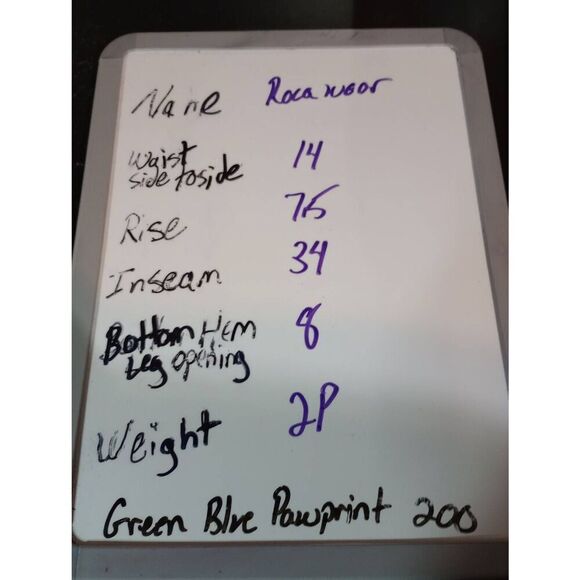 Name Rocawear
Waist 14
side toside
Rise 75
Inseam 34
Bottom Hem 8
Leg opening
Weight 2P
Green Blue Pawprint 200